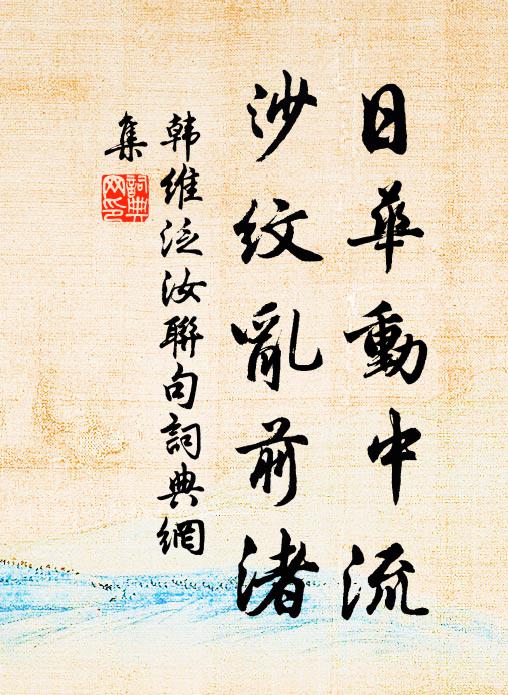 日華動中流
沙紋亂前渚
韩維泛汝聯句詞典網
集
詞典
网印